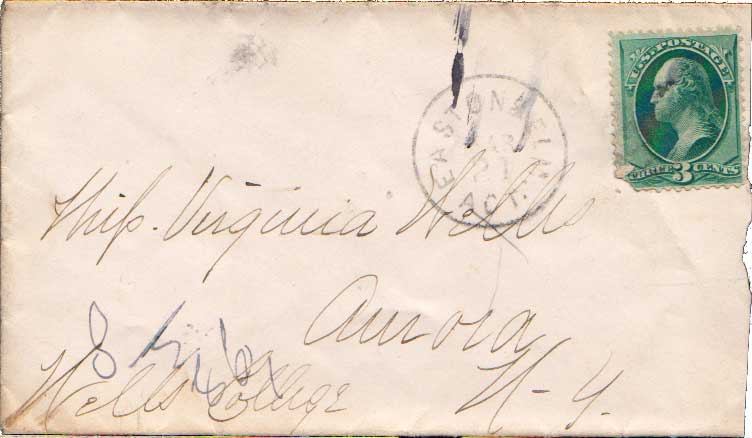 U.S. POSTAGE
THREE 3 CENTS
EASTON & ELI
MAR
21
AGT.
Miss. Virginia Wells
Aurora
Wells College N-Y.